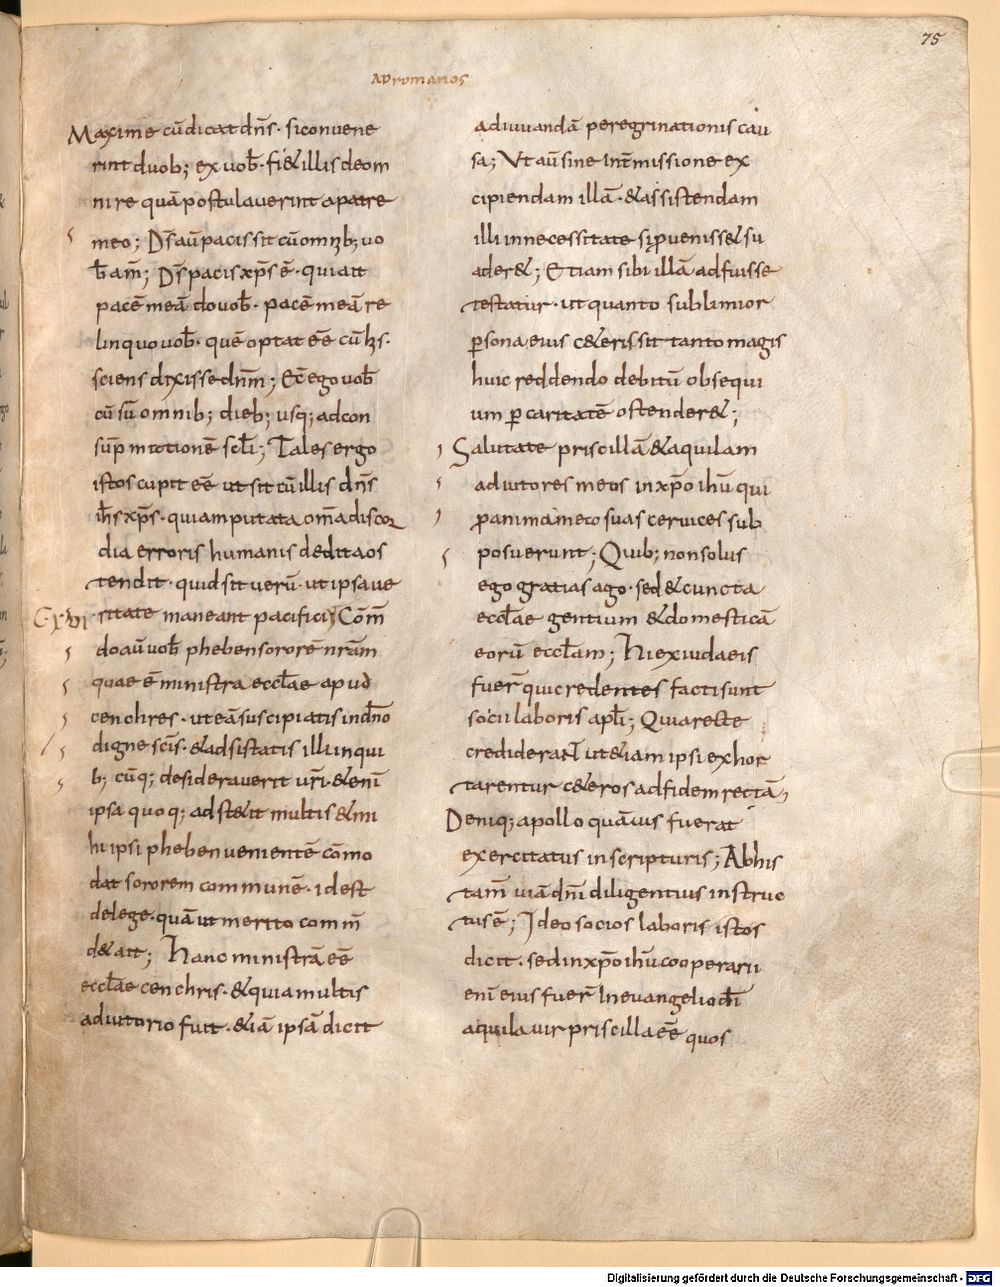 75
AD romanos
Maxime cū dicat dn̄s· si convene
rint duob; ex vob̄· fi& illis de om
ni re quā postulaverint a patre
meo; Ds̄ aū pacis sit cū omnib; vo
b̄ am̄; Ds̄ pacis xp̄s ē· qui ait
pacē meā do vob̄· pacē meā re
linquo vob̄· quē optat eē cū his·
sciens dixisse dnm̄; Ecē ego vob̄
cū sū omnib; dieb; usq; ad con
sūpmationē scl̄i; Tales ergo
istos cupit eē ut sit cū illis dn̄s
ih̄s xp̄s· qui amputata om̄a discor
dia erroris humanis dedita os
tendit· quid sit verū· ut ipsa ve
C·XVI ritate maneant pacifici; Com̄
do aū vob̄ pheben sororē nrām
quae ē ministra eccl̄ae apud
cenchres· ut eā suscipiatis in dn̄o
digne scīs· & adsistatis illi in qui
b; cūq; desideraverit vr̄i· & enī
ipsa quoq; adst&it multis & mi
hi ipsi pheben venientē cōmo
dat sororem communē· id est
de lege· quā ut merito comm̄
d& ait; Hanc ministrā eē
eccl̄ae cenchris· & quia multis
adiutorio fuit· &iā ipsā dicit
adiuvandā peregrinationis cau
sa; Ut aū sine int̄missione ex
cipiendam illā· & assistendam
illi in necessitate supvenisse su
ader&; Etiam sibi illā adfuisse
testatur· ut quanto sublimior
persona eius c&eris sit tanto magis
huic reddendo debitū obsequi
um p caritatē ostender&;
Salutate priscillā & aquilam
adiutores meos in xp̄o ih̄u qui
p anima mea suas cervices sub
posuerunt; Quib; non solus
ego gratias ago· sed & cuncta
eccl̄ae gentium & domesticā
eorū eccl̄am; Hi ex iudaeis
fuer̄ qui credentes facti sunt
socii laboris apl̄i; Quia recte
crediderant ut &iam ipsi exhor
tarentur c&eros ad fidem rectā;
Deniq; apollo quāvis fuerat
exercitatus in scripturis; Ab his
tam̄ viā dn̄i diligentius instruc
tus ē; Ideo socios laboris istos
dicit· sed in xp̄o ih̄u cooperarii
enī eius fuer̄ In evangelio dī
aquila vir priscillae ē quos
Digitalisierung gefördert durch die Deutsche Forschungsgemeinschaft - DFG